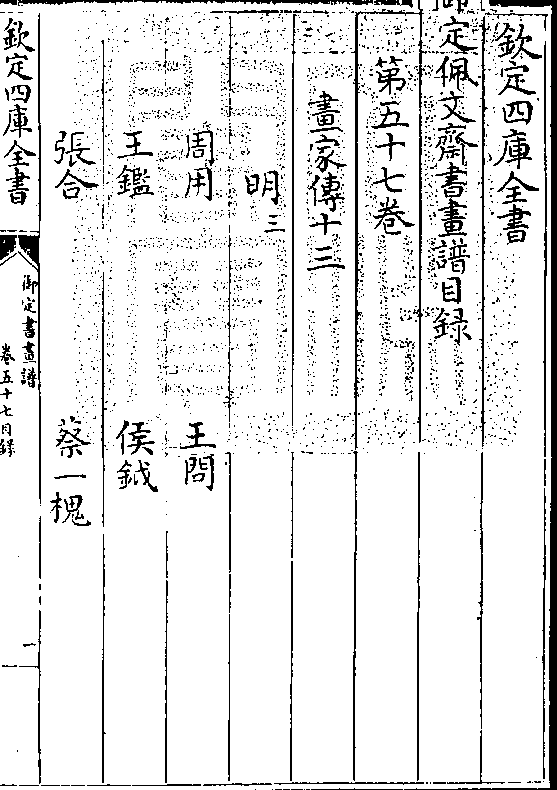 欽定四庫全書
御定佩文齋書畫譜目録
第五十七卷
畫家傳十三
明三
周用 王問
王鑑 侯鉞
張合 蔡一槐
欽定四庫全書
御定書畫譜
卷五十七目録
一